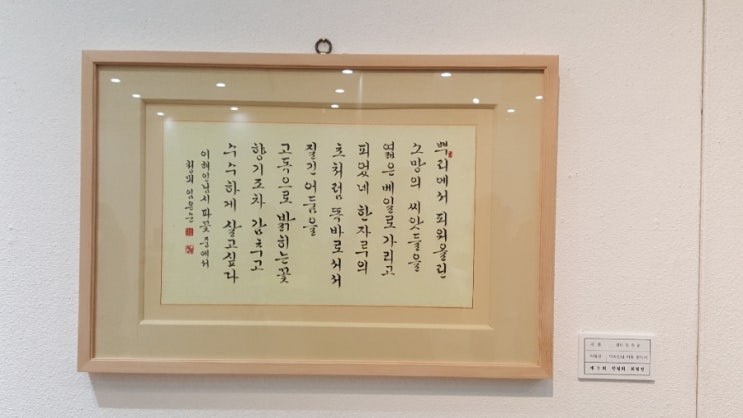 뿌리에서 피워올린
소망의 씨앗들을
엷은 베일로 가리고
피었네 한자루의
초처럼 똑바로 서서
질긴 어둠을
고독으로 밝히는 꽃
향기조차 감추고
수수하게 살고 싶다
이해인님 시 파꽃 중에서